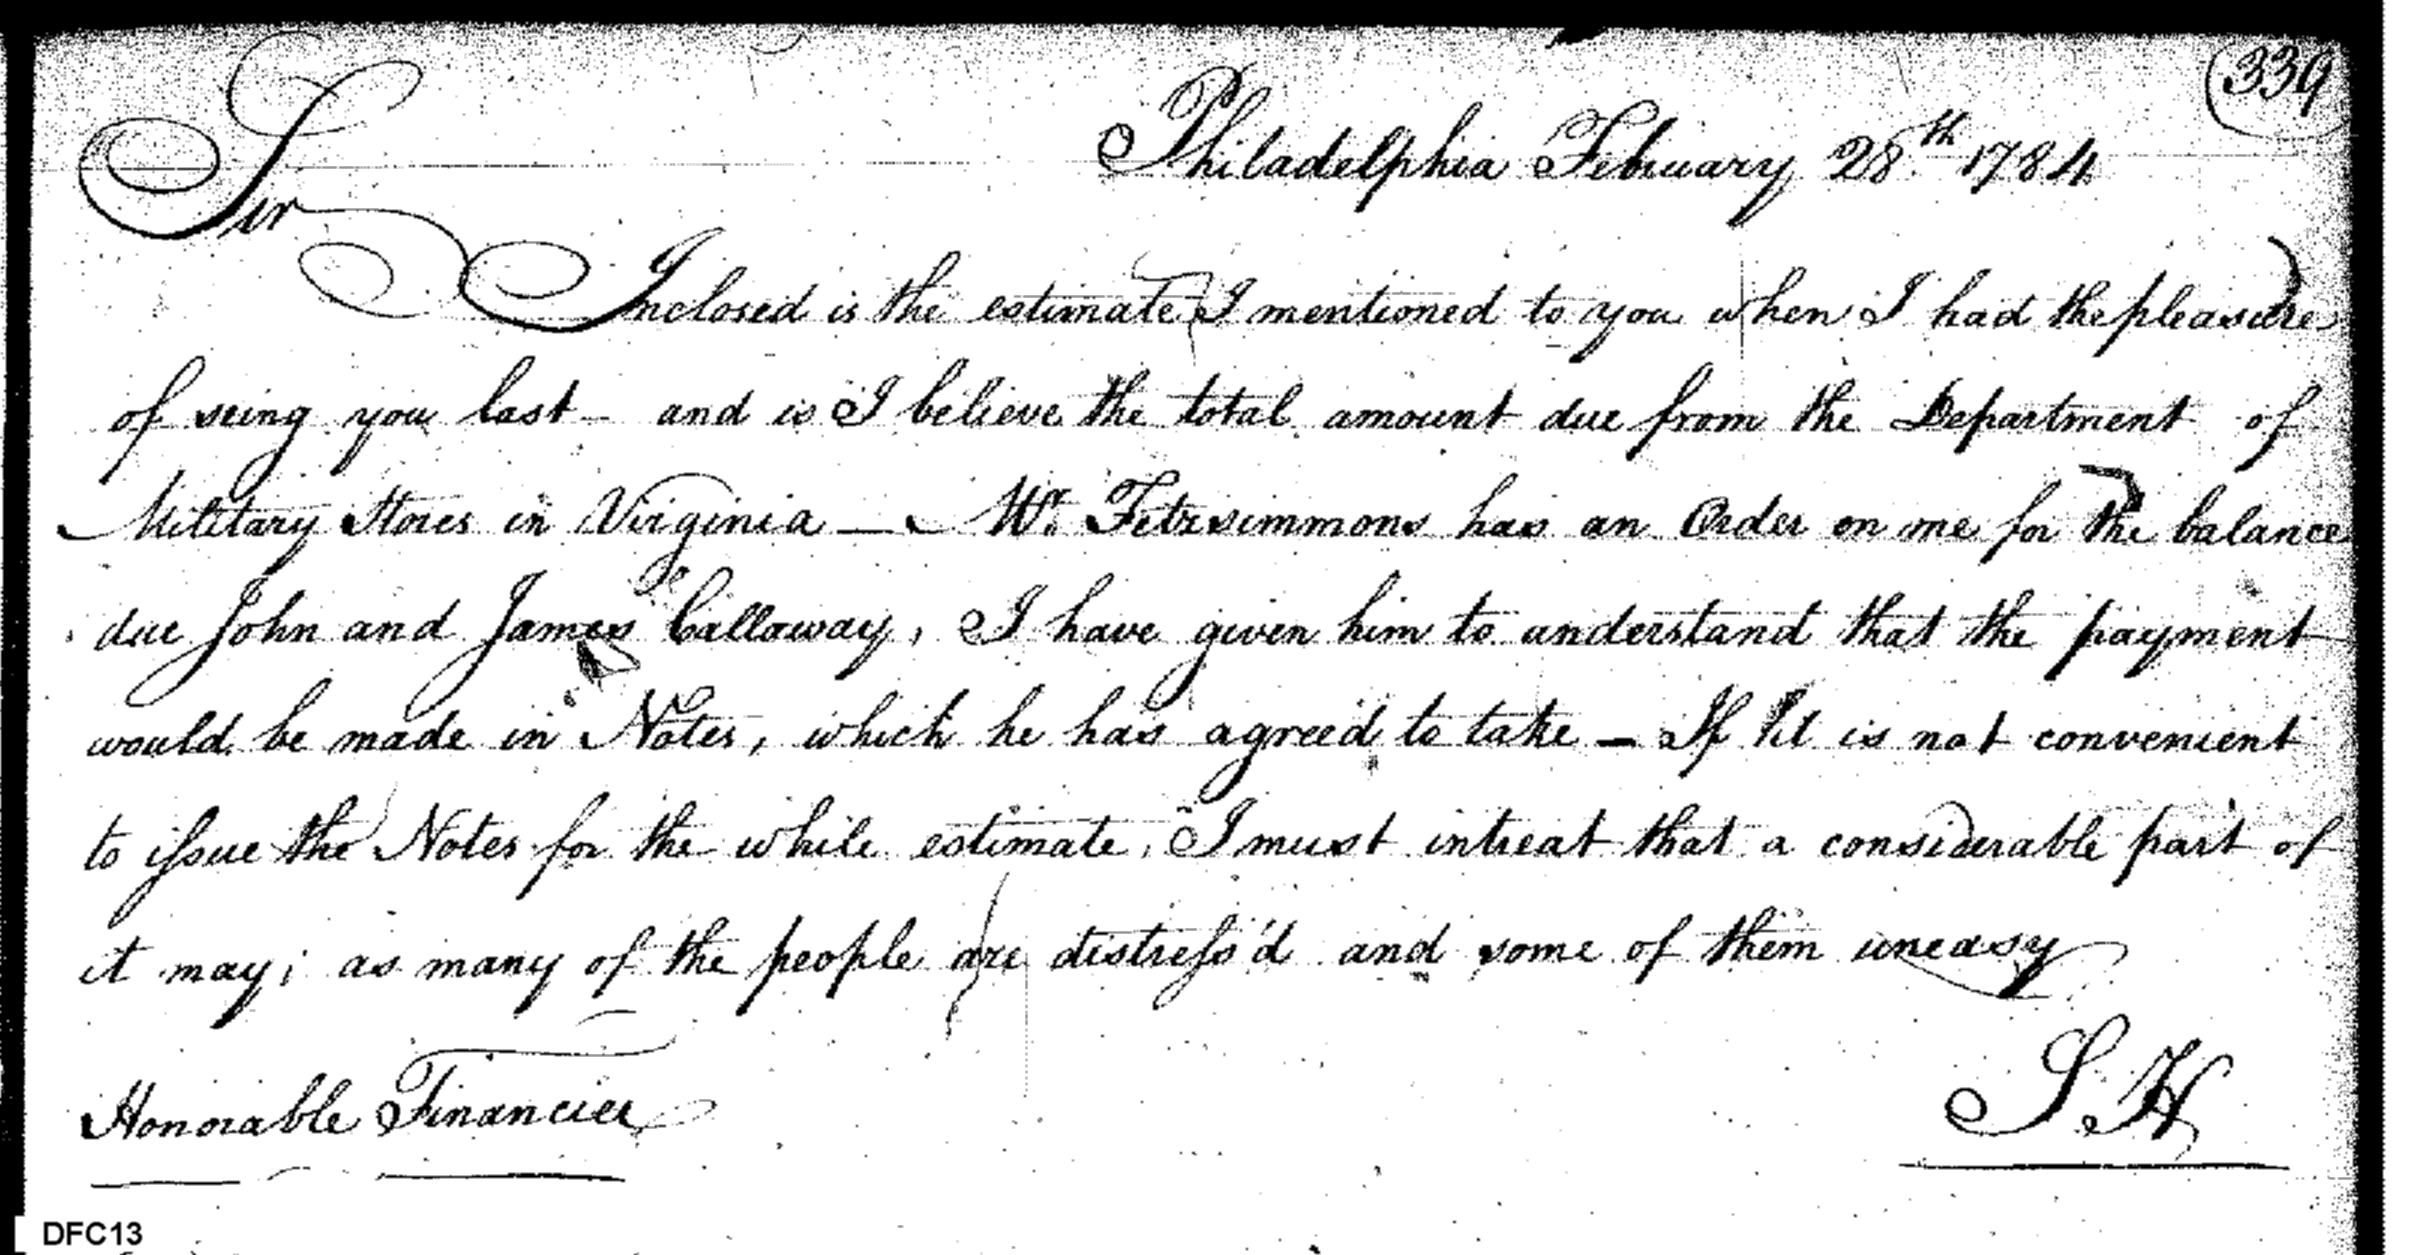 339
Philadelphia February 28th 1784
Sir
Inclosed is the estimate I mentioned to you when I had the pleasure
of seing you last – and is I believe the total amount due from the Department of
Military Stores in Virginia — Mr. Fitzsimmons has an Order on me for the balance
due John and James Callaway, I have given him to understand that the payment
would be made in Notes, which he has agreed to take – If it is not convenient
to issue the Notes for the while estimate, I must intreat that a considerable part of
it may; as many of the people are distress'd and some of them uneasy
Honorable Financier
S. H
DFC13